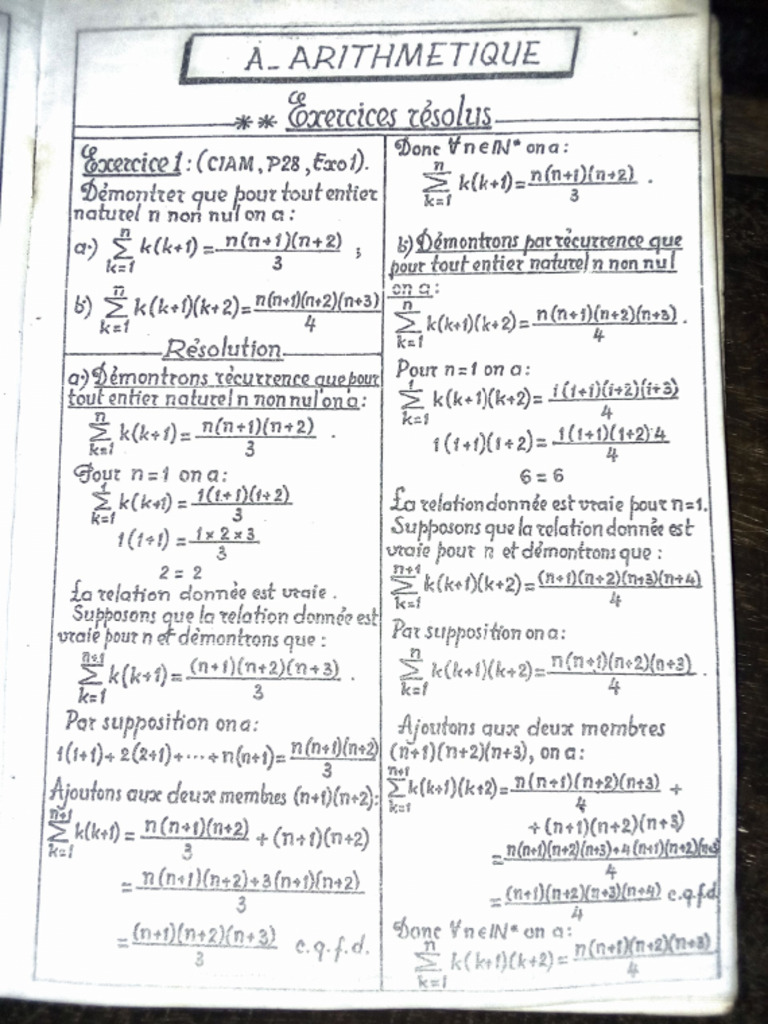 A_ ARITHMETIQUE
** Exercices résolus
Exercice 1 : (CIAM, P28, Exo1).
Démontrer que pour tout entier
naturel n non nul on a :
a·) \sum_{k=1}^{n} k(k+1) = \frac{n(n+1)(n+2)}{3} ;
b) \sum_{k=1}^{n} k(k+1)(k+2) = \frac{n(n+1)(n+2)(n+3)}{4}
Résolution
a·) Démontrons récurrence que pour
tout entier naturel n non nul on a :
\sum_{k=1}^{n} k(k+1) = \frac{n(n+1)(n+2)}{3} .
Pour n=1 on a :
\sum_{k=1}^{1} k(k+1) = \frac{1(1+1)(1+2)}{3}
1(1+1) = \frac{1×2×3}{3}
2 = 2
La relation donnée est vraie .
Supposons que la relation donnée est
vraie pour n et démontrons que :
\sum_{k=1}^{n+1} k(k+1) = \frac{(n+1)(n+2)(n+3)}{3} .
Par supposition on a :
1(1+1) + 2(2+1) + ··· + n(n+1) = \frac{n(n+1)(n+2)}{3}
Ajoutons aux deux membres (n+1)(n+2):
\sum_{k=1}^{n+1} k(k+1) = \frac{n(n+1)(n+2)}{3} + (n+1)(n+2)
= \frac{n(n+1)(n+2)+3(n+1)(n+2)}{3}
= \frac{(n+1)(n+2)(n+3)}{3} c.q.f.d.
Donc ∀n∈IN* on a :
\sum_{k=1}^{n} k(k+1) = \frac{n(n+1)(n+2)}{3} .
b) Démontrons par récurrence que
pour tout entier naturel n non nul
on a :
\sum_{k=1}^{n} k(k+1)(k+2) = \frac{n(n+1)(n+2)(n+3)}{4} .
Pour n=1 on a :
\sum_{k=1}^{1} k(k+1)(k+2) = \frac{1(1+1)(1+2)(1+3)}{4}
1(1+1)(1+2) = \frac{1(1+1)(1+2)·4}{4}
6 = 6
La relation donnée est vraie pour n=1.
Supposons que la relation donnée est
vraie pour n et démontrons que :
\sum_{k=1}^{n+1} k(k+1)(k+2) = \frac{(n+1)(n+2)(n+3)(n+4)}{4}
Par supposition on a :
\sum_{k=1}^{n} k(k+1)(k+2) = \frac{n(n+1)(n+2)(n+3)}{4} .
Ajoutons aux deux membres
(n+1)(n+2)(n+3), on a :
\sum_{k=1}^{n+1} k(k+1)(k+2) = \frac{n(n+1)(n+2)(n+3)}{4} +
+ (n+1)(n+2)(n+3)
= \frac{n(n+1)(n+2)(n+3)+4(n+1)(n+2)(n+3)}{4}
= \frac{(n+1)(n+2)(n+3)(n+4)}{4} c.q.f.d
Donc ∀n∈IN* on a :
\sum_{k=1}^{n} k(k+1)(k+2) = \frac{n(n+1)(n+2)(n+3)}{4}